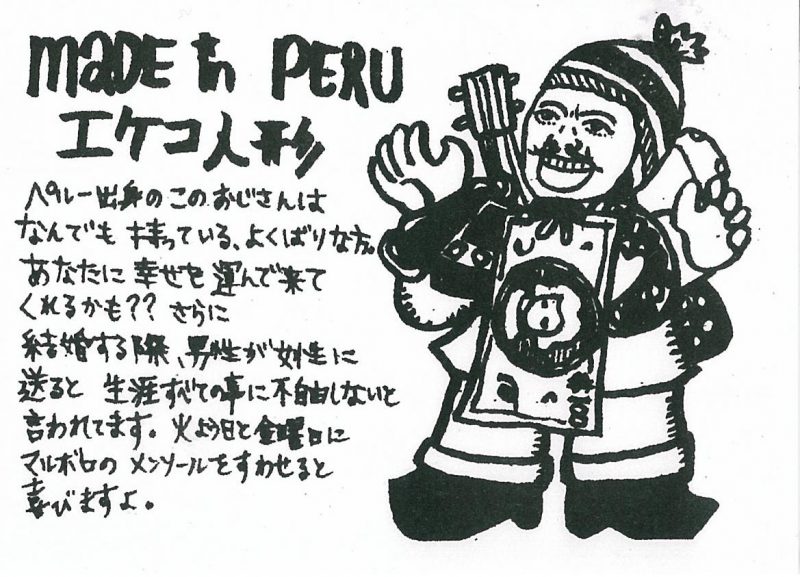 MADE in PERU
エケコ人形
ペルー出身の この おじさんは
なんでも 持っている、よくばりな方。
あなたに 幸せを 運んで来て
くれるかも?? さらに
結婚する際、男性が女性に
送ると 生涯すべての事に不自由しないと
言われてます。火よう日と金曜日に
マルボロの メンソールをすわせると
喜びますよ。
100